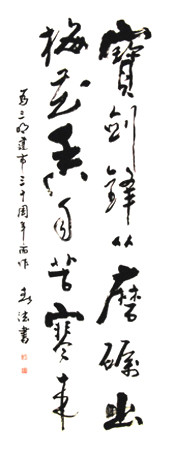 寶劍鋒从磨礪出
梅花香自苦寒來
為三明建市三十周年而作 春法書